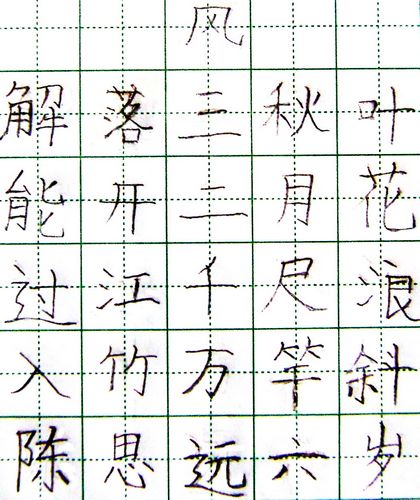 风
解落三秋叶
能开二月花
过江千尺浪
入竹万竿斜
陈思远六岁